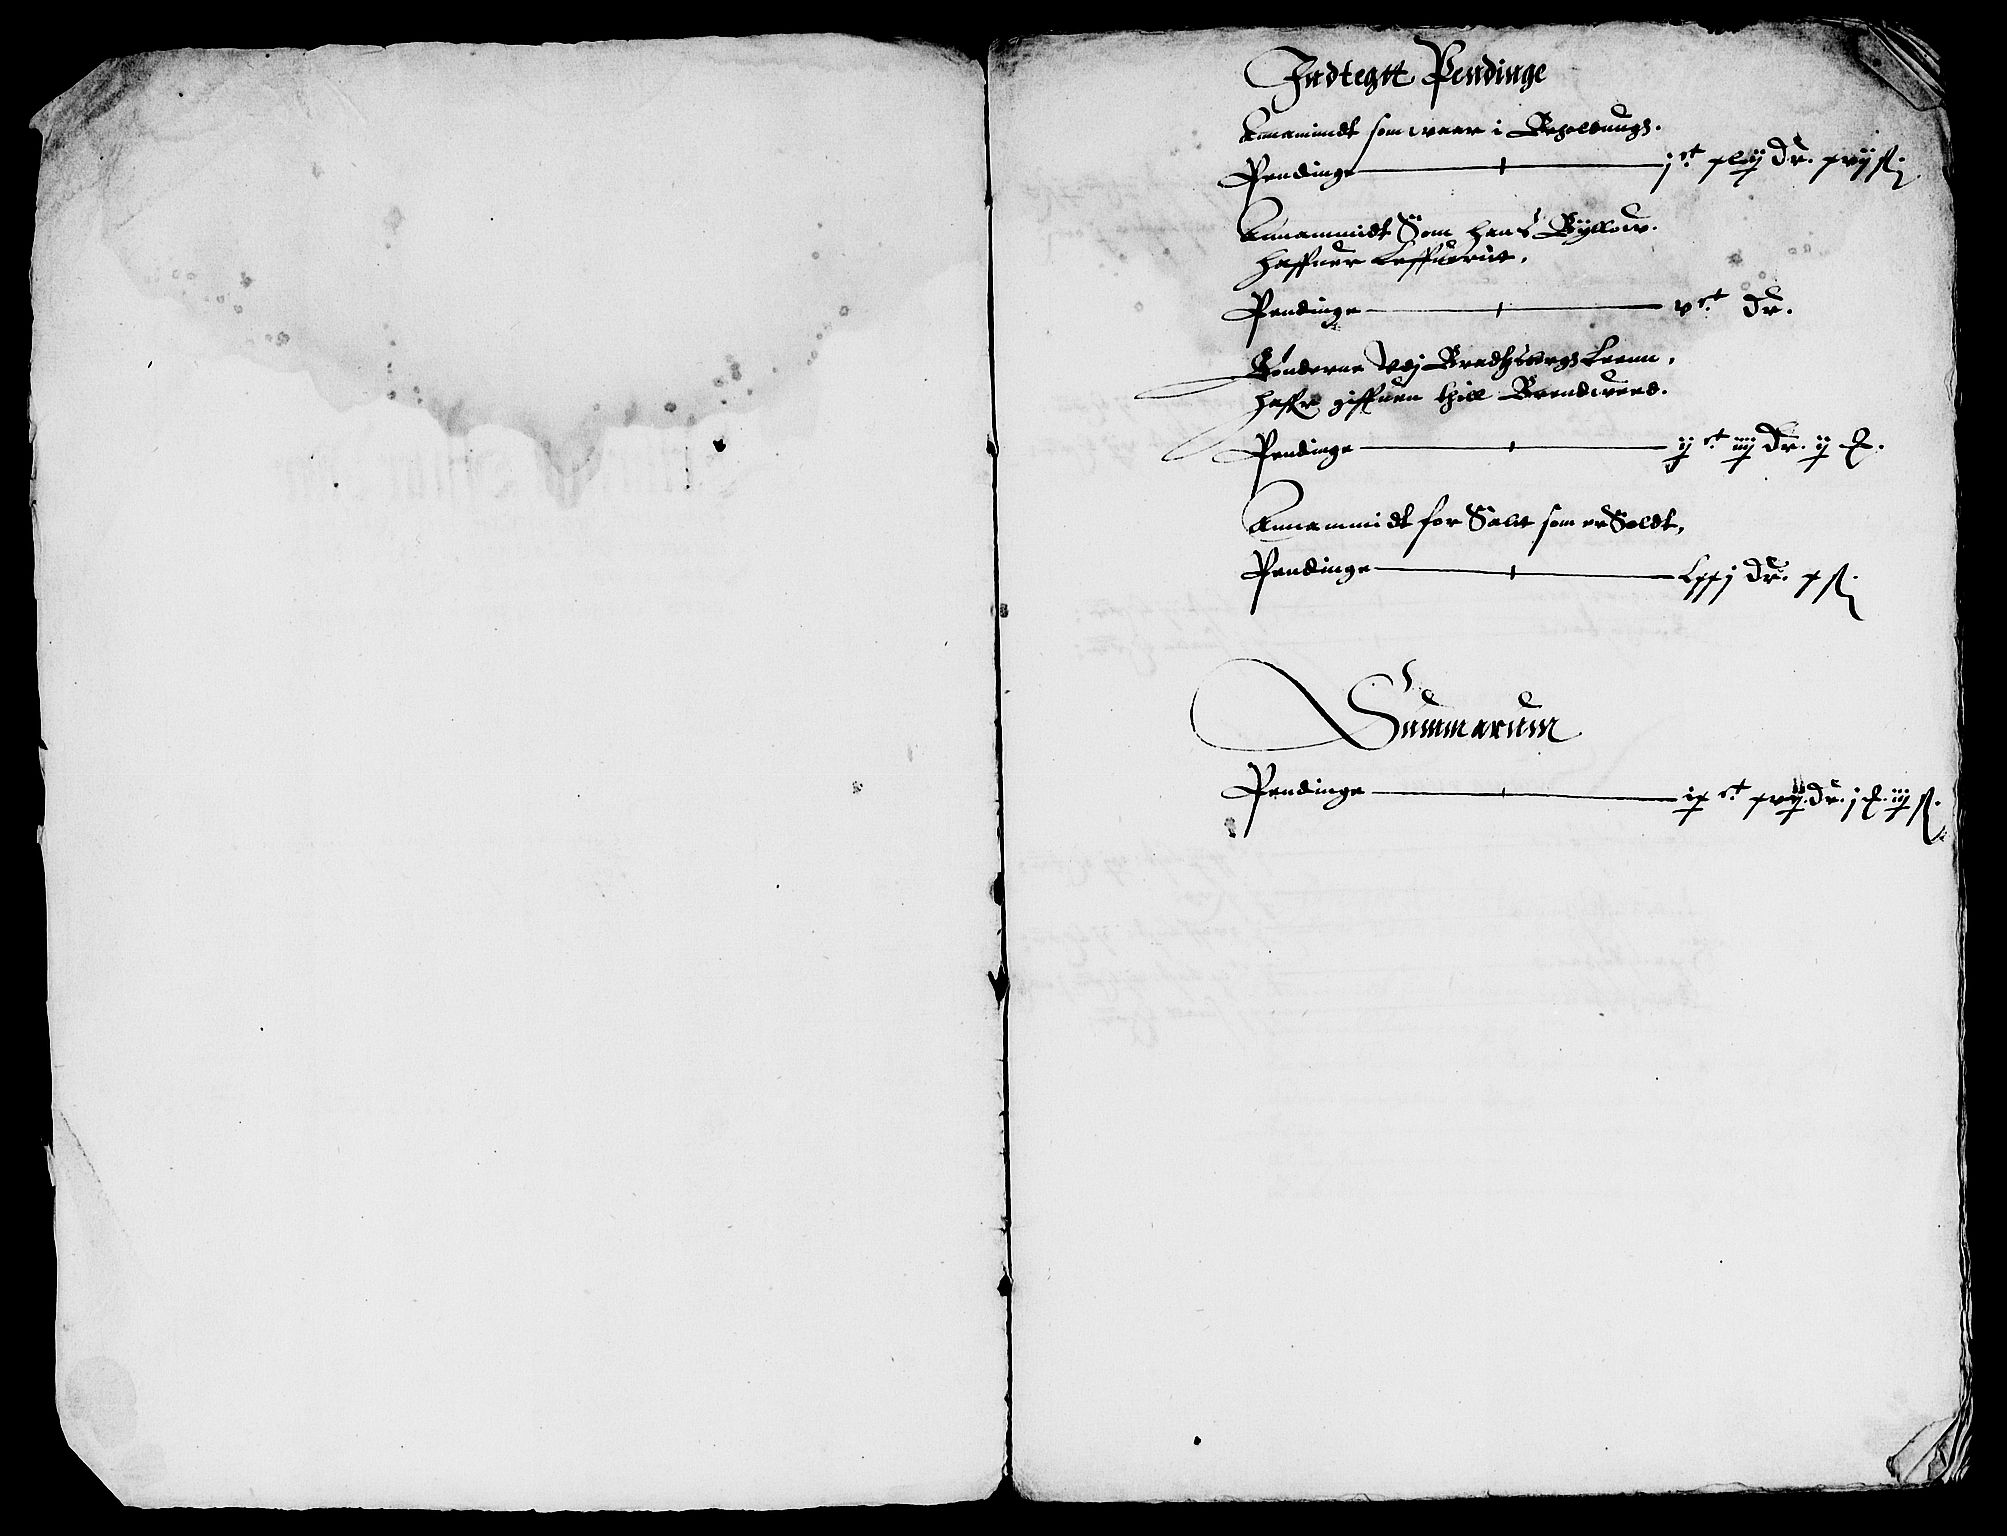 Indtegtt Pendinge
Annamindt som waar i Beholdnings.
Pendinge — jct xlij dr. xvij ß.
Annammidt Som Hans Byllow.
haffuer Leffuerit,
Pendinge — vct dr.
Bønderne Vdj Bradtzbergs Leenn,
haffr giffuen thill Brendweed.
Pendinge — ijct iiij dr. ij
Annammidt for Salt som er Soldt,
Pendinge — Lxxj dr. x ß.
Summarum
Pendinge — ixct xvij dr. j iiij ß.